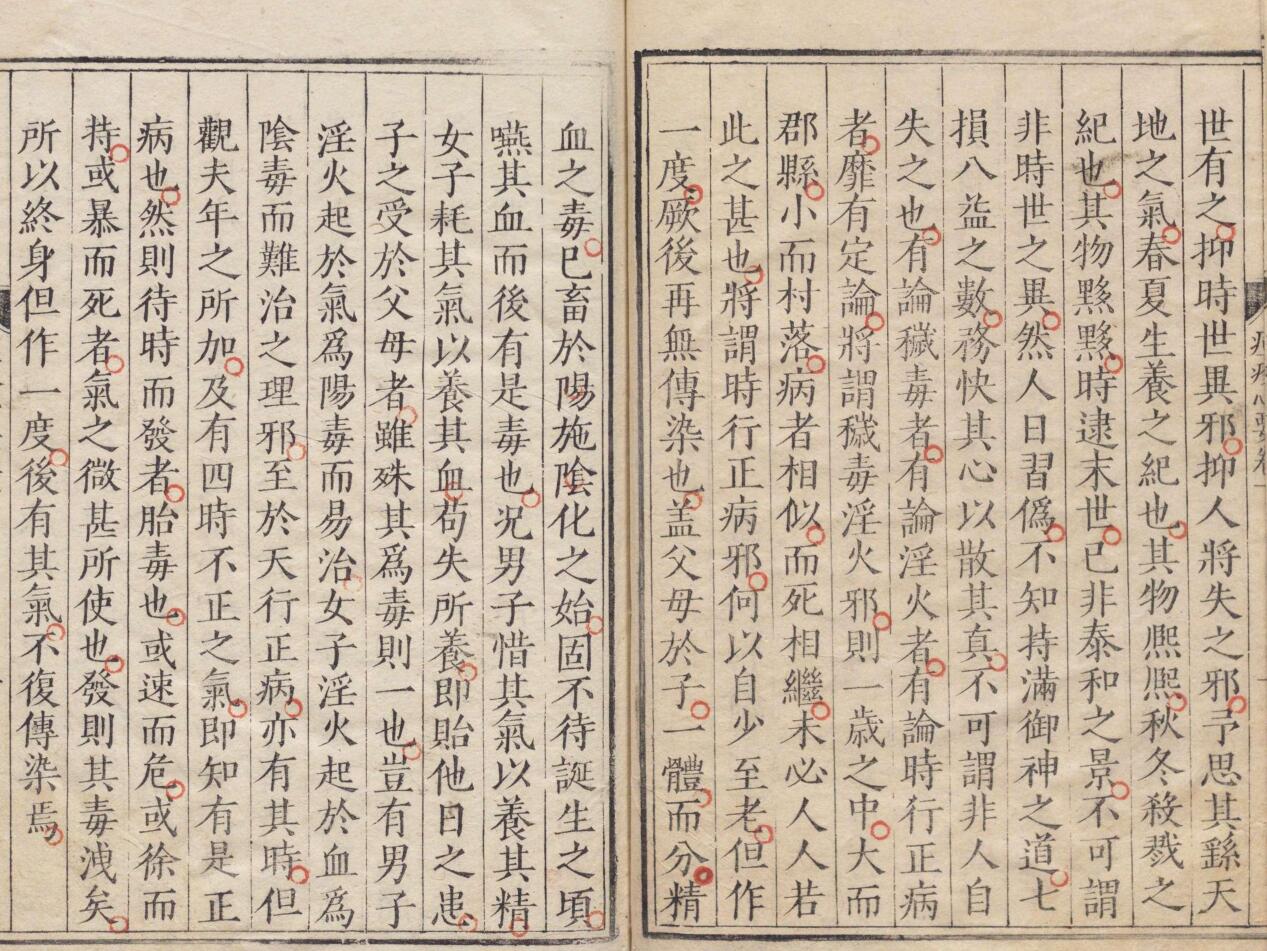 世有之抑時世異邪抑人將失之邪予思其繇天
地之氣春夏生養之紀也其物熙熙秋冬殺戮之
紀也其物黟黟時逮末世已非泰和之景不可謂
非時世之異然人日習僞不知持滿御神之道七
損八益之數務快其心以散其真不可謂非人自
失之也有論穢毒者有論淫火者有論時行正病
者靡有定論將謂穢毒淫火邪則一歲之中大而
郡縣小而村落病者相似而死相繼未必人人若
此之甚也將謂時行正病邪何以自少至老但作
一度厥後再無傳染也盖父母於子一體而分精
血之毒已畜於陽施陰化之始固不待誕生之頃
嚥其血而後有是毒也况男子惜其氣以養其精
女子耗其氣以養其血苟失所養即貽他日之患
子之受於父母者雖殊其爲毒則一也豈有男子
淫火起於氣爲陽毒而易治女子淫火起於血爲
陰毒而難治之理邪至於天行正病亦有其時但
觀夫年之所加及有四時不正之氣即知有是正
病也然則待時而發者胎毒也或速而危或徐而
持或暴而死者氣之微甚所使也發則其毒洩矣
所以終身但作一度後有其氣不復傳染焉